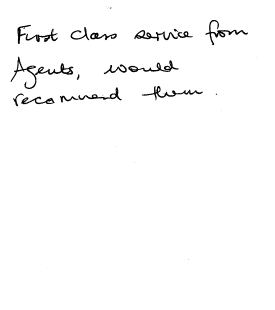 First class service from
Agents, would
recommend them.